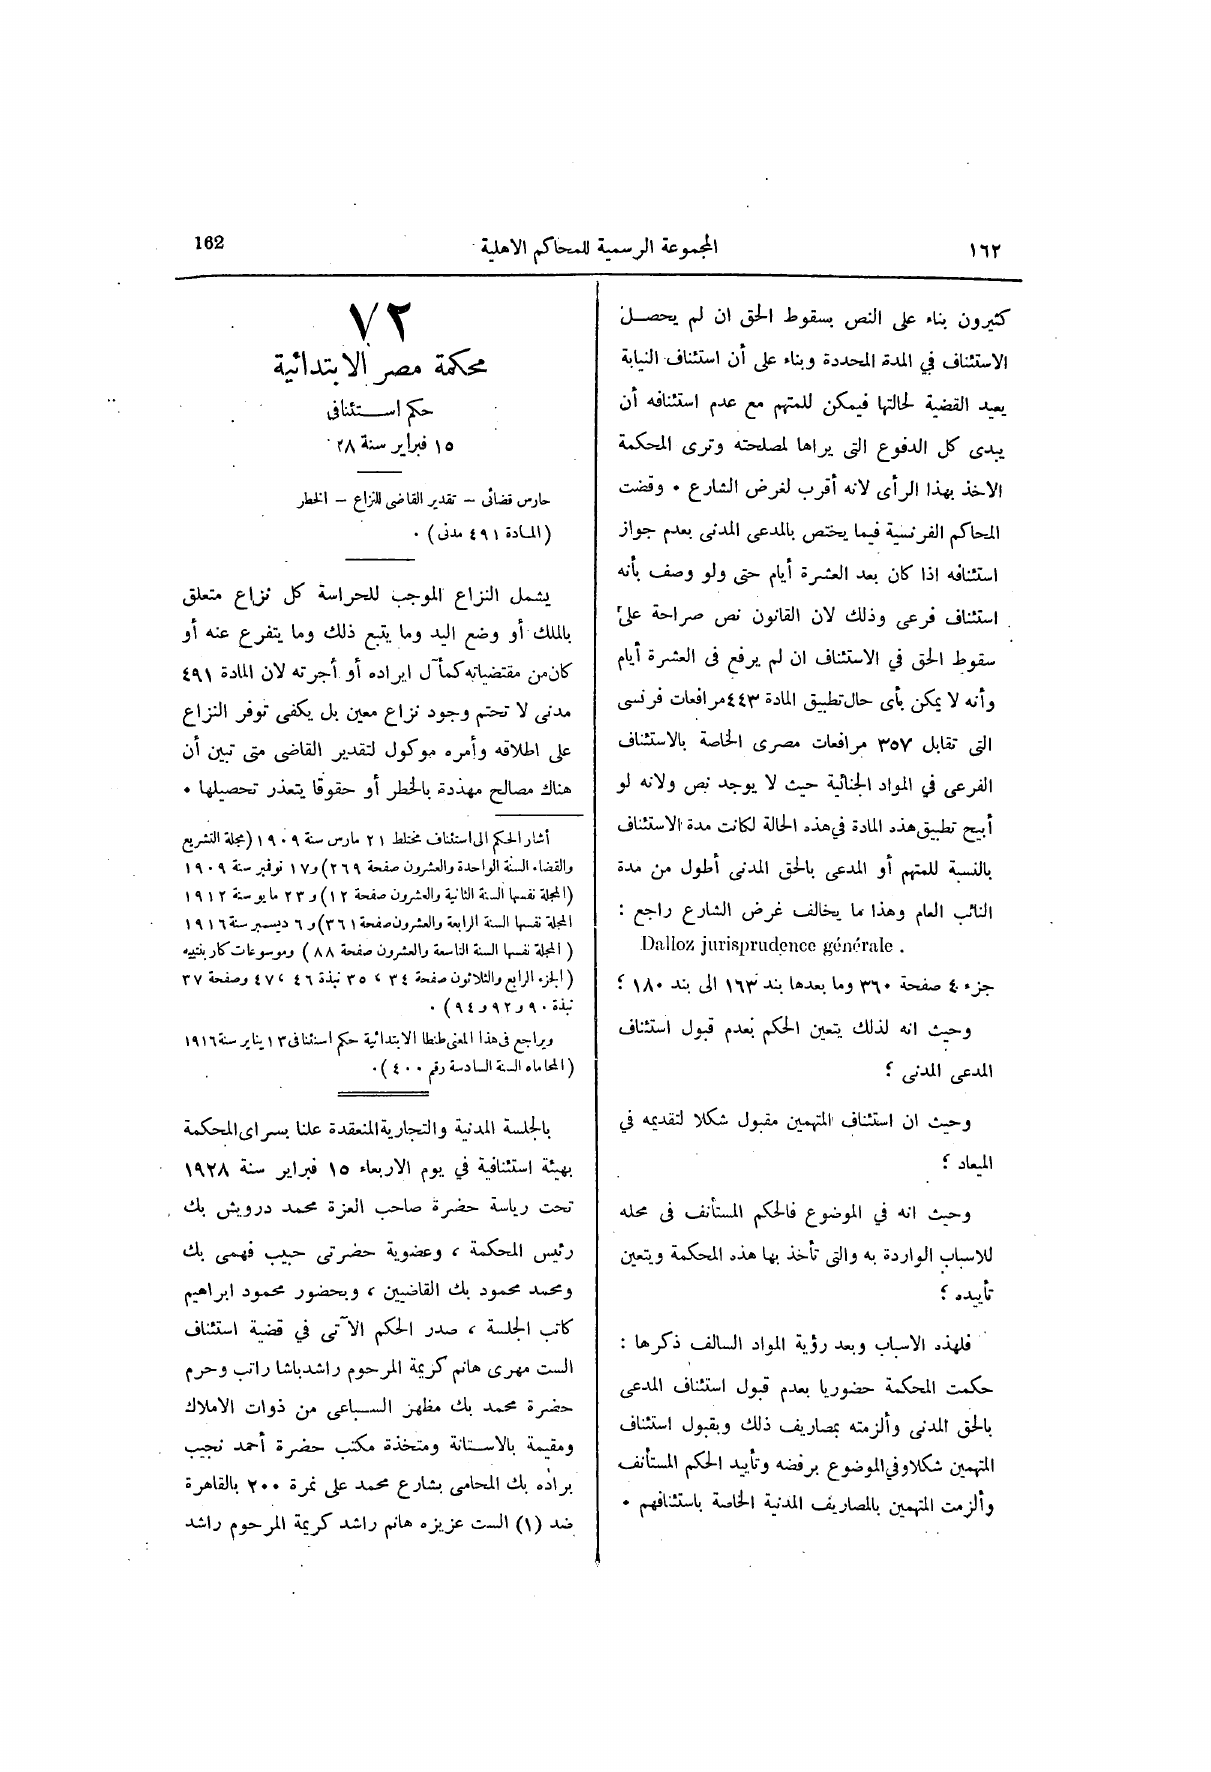 ١٦٢ المجموعة الرسمية للمحاكم الاهلية 162
كثيرون بناء على النص بسقوط الحق ان لم يحصل
الاستئناف في المدة المحددة وبناء على أن استئناف النيابة
يعيد القضية لحالتها فيمكن للمتهم مع عدم استئنافه أن
يبدى كل الدفوع التى يراها لمصلحته وترى المحكمة
الاخذ بهذا الرأى لانه أقرب لغرض الشارع • وقضت
المحاكم الفرنسية فيما يختص بالمدعى المدنى بعدم جواز
استئنافه اذا كان بعد العشرة أيام حتى ولو وصف بأنه
استئناف فرعى وذلك لان القانون نص صراحة على
سقوط الحق في الاستئناف ان لم يرفع فى العشرة أيام
وأنه لا يمكن بأى حال تطبيق المادة ٤٤٣ مرافعات فرنسى
التى تقابل ٣٥٧ مرافعات مصرى الخاصة بالاستئناف
الفرعى في المواد الجنائية حيث لا يوجد نص ولانه لو
أبيح تطبيق هذه المادة في هذه الحالة لكانت مدة الاستئناف
بالنسبة للمتهم أو المدعى بالحق المدنى أطول من مدة
النائب العام وهذا ما يخالف غرض الشارع راجع :
Dalloz jurisprudence générale .
جزء ٤ صفحة ٣٦٠ وما بعدها بند ١٦٣ الى بند ١٨٠ ؛
وحيث انه لذلك يتعين الحكم بعدم قبول استئناف
المدعى المدنى ؛
وحيث ان استئناف المتهمين مقبول شكلا لتقديمه في
الميعاد ؛
وحيث انه في الموضوع فالحكم المستأنف فى محله
للاسباب الواردة به والتى تأخذ بها هذه المحكمة ويتعين
تأييده ؛
فلهذه الاسباب وبعد رؤية المواد السالف ذكرها :
حكمت المحكمة حضوريا بعدم قبول استئناف المدعى
بالحق المدنى وألزمته بمصاريف ذلك وبقبول استئناف
المتهمين شكلا وفى الموضوع برفضه وتأييد الحكم المستأنف
وألزمت المتهمين بالمصاريف المدنية الخاصة باستئنافهم •
٧٢
محكمة مصر الابتدائية
حكم استئنافى
١٥ فبراير سنة ٢٨
حارس قضائى – تقدير القاضى للنزاع – الخطر
(المادة ٤٩١ مدنى) .
يشمل النزاع الموجب للحراسة كل نزاع متعلق
بالملك أو وضع اليد وما يتبع ذلك وما يتفرع عنه أو
كان من مقتضياته كمآل ايراده أو أجرته لان المادة ٤٩١
مدنى لا تحتم وجود نزاع معين بل يكفى توفر النزاع
على اطلاقه وأمره موكول لتقدير القاضى متى تبين أن
هناك مصالح مهددة بالخطر أو حقوقا يتعذر تحصيلها •
أشار الحكم الى استئناف مختلط ٢١ مارس سنة ١٩٠٩ (مجلة التشريع
والقضاء السنة الواحدة والعشرون صفحة ٢٦٩) و١٧ نوفمبر سنة ١٩٠٩
(المجلة نفسها السنة الثانية والعشرون صفحة ١٢) و ٢٣ مايو سنة ١٩١٢
المجلة نفسها السنة الرابعة والعشرون صفحة ٣٦١) و ٦ ديسمبر سنة ١٩١٦
(المجلة نفسها السنة التاسعة والعشرون صفحة ٨٨) وموسوعات كاربنتييه
(الجزء الرابع والثلاثون صفحة ٣٤ ، ٣٥ نبذة ٤٦ ، ٤٧ وصفحة ٣٧
نبذة ٩٠ و ٩٢ و ٩٤) .
ويراجع فى هذا المعنى طنطا الابتدائية حكم استئنافى ١٣ يناير سنة ١٩١٦
(المحاماه السنة السادسة رقم ٤٠٠ ) .
بالجلسة المدنية والتجارية المنعقدة علنا بسراى المحكمة
بهيئة استئنافية في يوم الاربعاء ١٥ فبراير سنة ١٩٢٨
تحت رياسة حضرة صاحب العزة محمد درويش بك
رئيس المحكمة ، وعضوية حضرتى حبيب فهمى بك
ومحمد محمود بك القاضيين ، وبحضور محمود ابراهيم
كاتب الجلسة ، صدر الحكم الآتى في قضية استئناف
الست مهرى هانم كريمة المرحوم راشد باشا راتب وحرم
حضرة محمد بك مظهر السباعى من ذوات الاملاك
ومقيمة بالاستانة ومتخذة مكتب حضرة أحمد نجيب
براده بك المحامى بشارع محمد على نمرة ٢٠٠ بالقاهرة
ضد (١) الست عزيزه هانم راشد كريمة المرحوم راشد